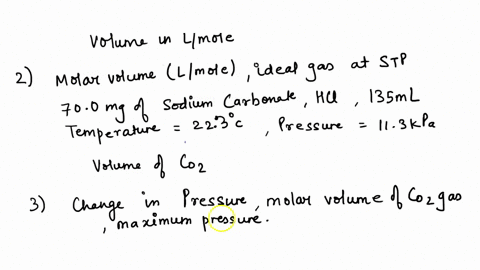 Volume in L/mole
2) Molar volume (L/mole), ideal gas at STP
70.0 mg of Sodium Carbonate, HCl, 135mL
Temperature = 22.3°C, Pressure = 11.3kPa
Volume of CO2
3) Change in Pressure, molar volume of CO2 gas
, maximum pressure.